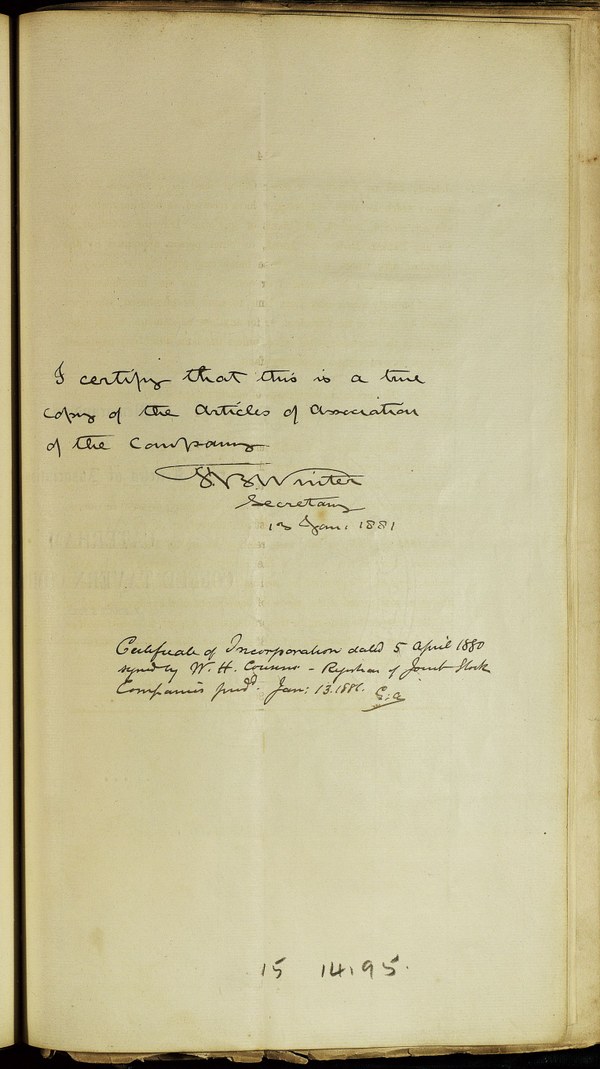 I certify that this is a true
copy of the Articles of Association
of the Company
Winter
Secretary
13 Jan. 1881
Certificate of Incorporation dated 5 April 1880
signed by W. H. Cousins - Registrar of Joint Stock
Companies prodd. Jan: 13. 1881. E: a
15 14195.